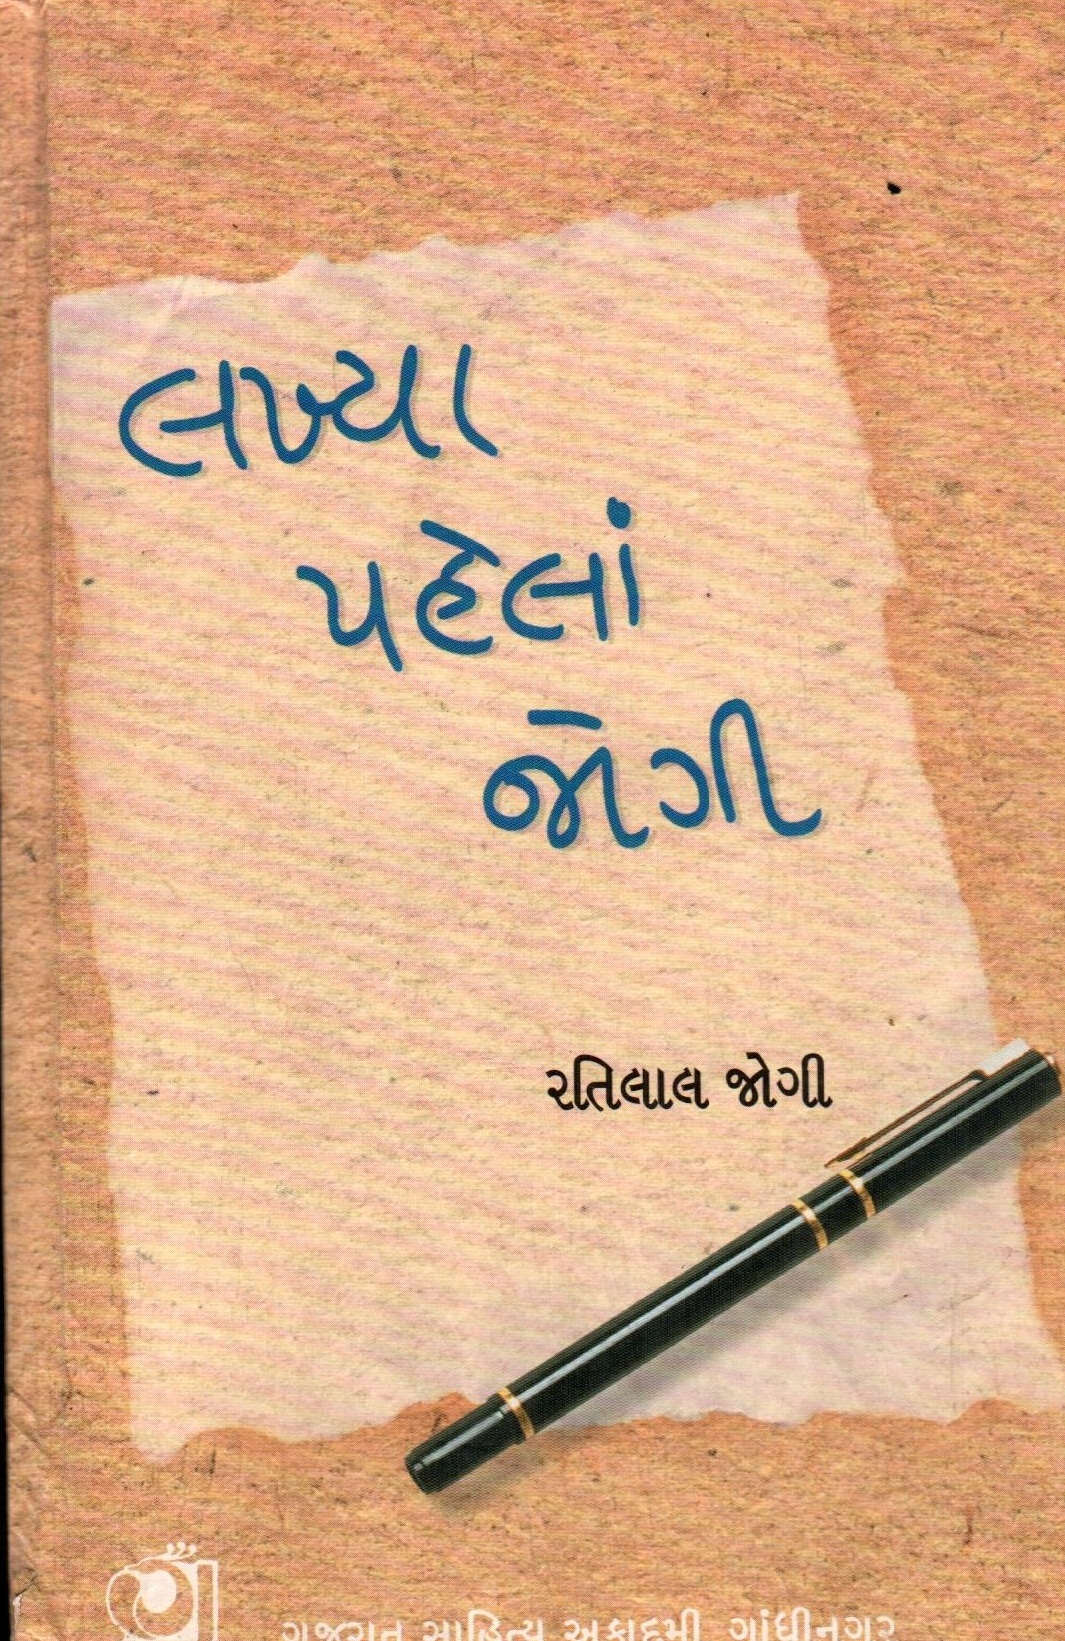 લખ્યા
પહેલાં
જોગી
રતિલાલ જોગી
ગુજરાત સાહિત્ય અકાદમી, ગાંધીનગર